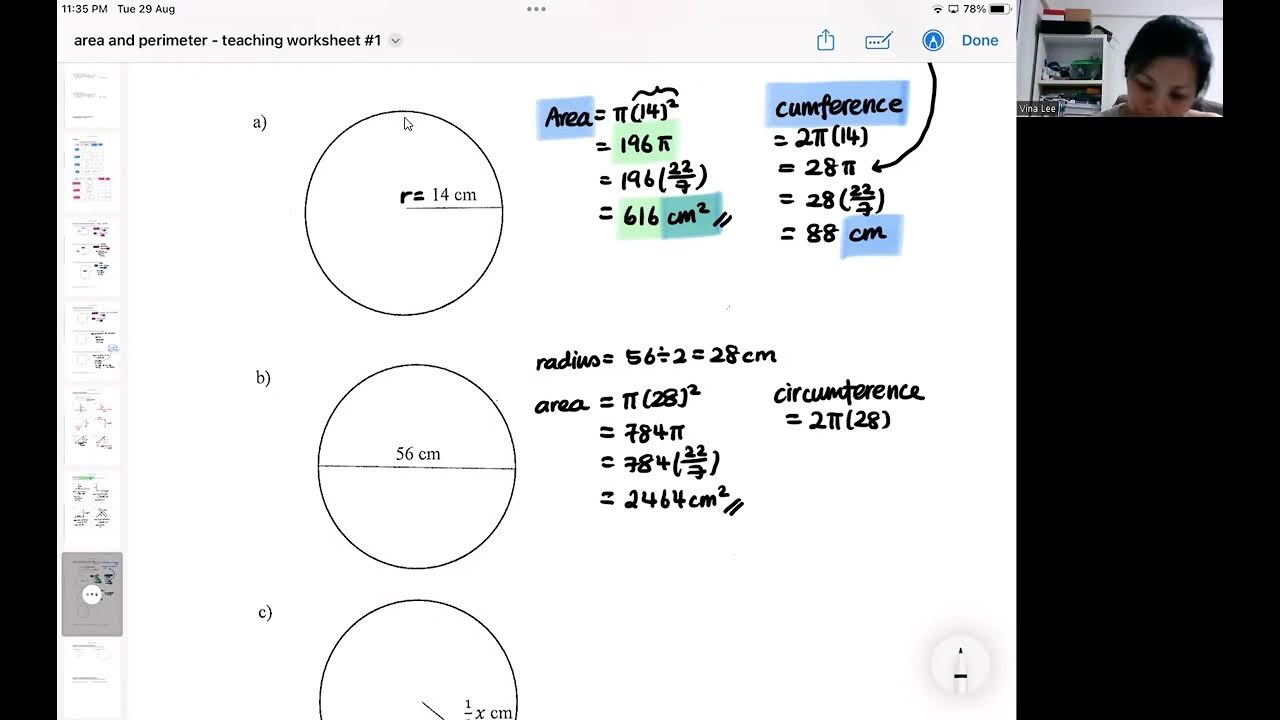 11:35 PM Tue 29 Aug
78%
area and perimeter - teaching worksheet #1
Done
Vina Lee
a)
r = 14 cm
Area = π(14)²
= 196π
= 196(22/7)
= 616 cm²
cumference
= 2π(14)
= 28π
= 28(22/7)
= 88 cm
b)
56 cm
radius = 56÷2 = 28cm
area = π(28)²
= 784π
= 784(22/7)
= 2464cm²
circumference
= 2π(28)
c)
x cm